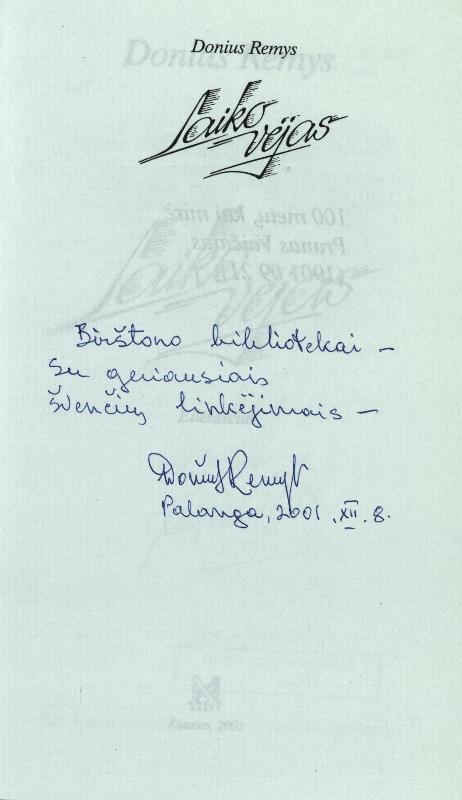 Donius Remys
Laiko
vėjas
Birštono bibliotekai –
Su geriausiais
švenčių linkėjimais –
Palanga, 2001.XII.8.
Kaunas, 2001